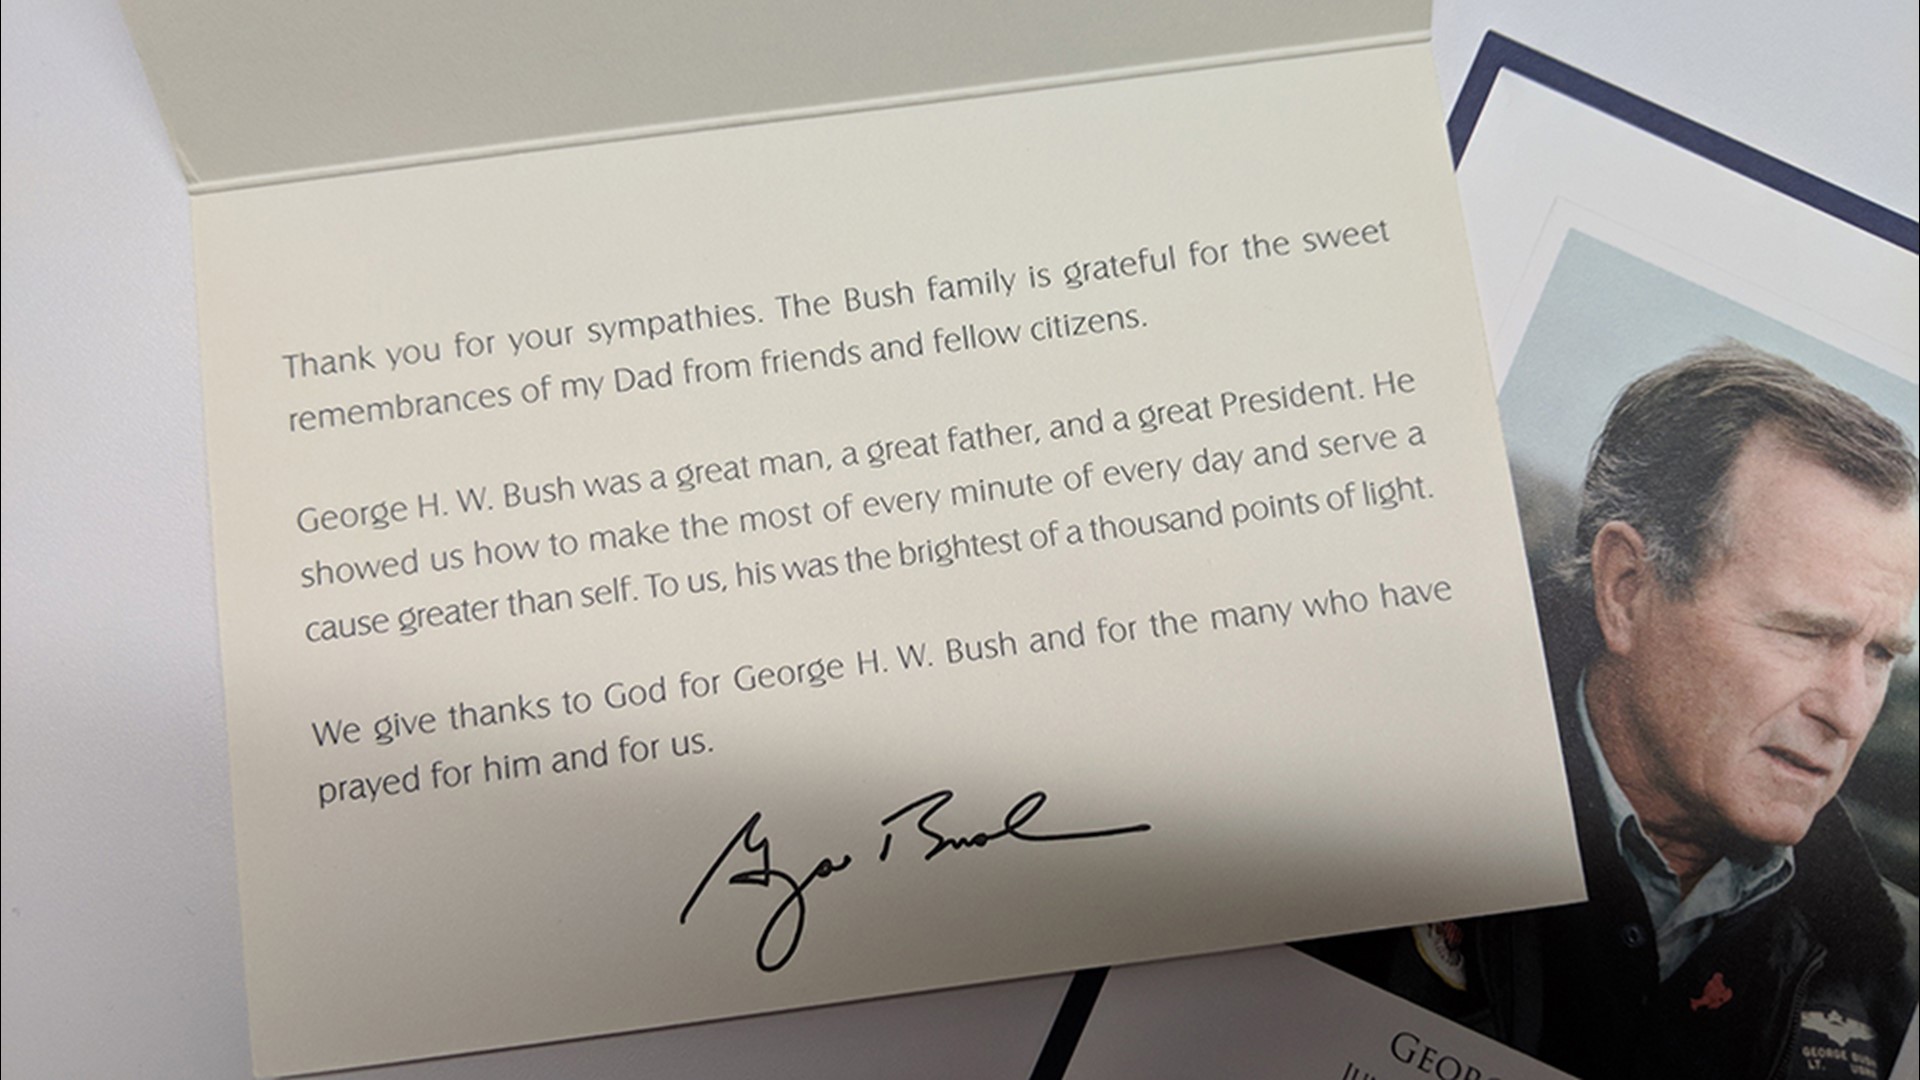 Thank you for your sympathies. The Bush family is grateful for the sweet
remembrances of my Dad from friends and fellow citizens.
George H. W. Bush was a great man, a great father, and a great President. He
showed us how to make the most of every minute of every day and serve a
cause greater than self. To us, his was the brightest of a thousand points of light.
We give thanks to God for George H. W. Bush and for the many who have
prayed for him and for us.
George Bush
GEORGE BUSH
LT. USNR